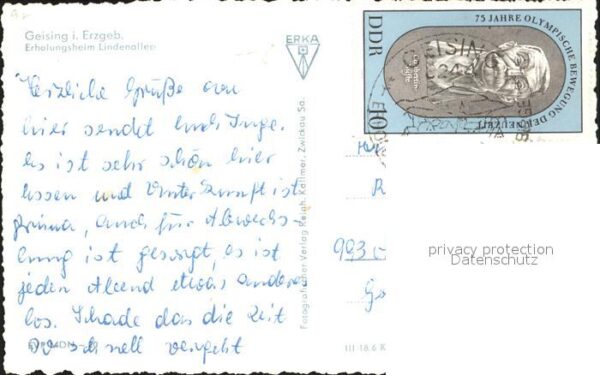 Geising i. Erzgeb.
Erholungsheim Lindenallee
ERKA
Herzliche Grüße von
hier sendet Euch Inge.
Es ist sehr schön hier
Essen und Unterkunft ist
prima, auch für Abwechs-
lung ist gesorgt, es ist
jeden Abend etwas anderes
los. Schade das die Zeit
so schnell vergeht
Fotografischer Verlag Reinh. Kallmer, Zwickau Sa.
DDR
75 JAHRE OLYMPISCHE BEWEGUNG DER NEUZEIT
10
GEISING
993
III 18 6 K
privacy protection
Datenschutz